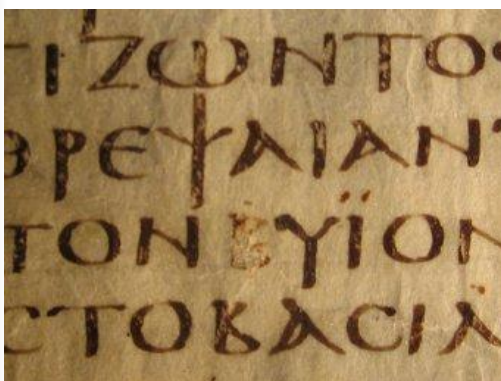 ΤΙΖΩΝΤΟ
ΘΡΕΨΑΙΑΝΤ
ΤΟΝΒΥΪΟΝ
ϹΤΟΒΑϹΙΛ